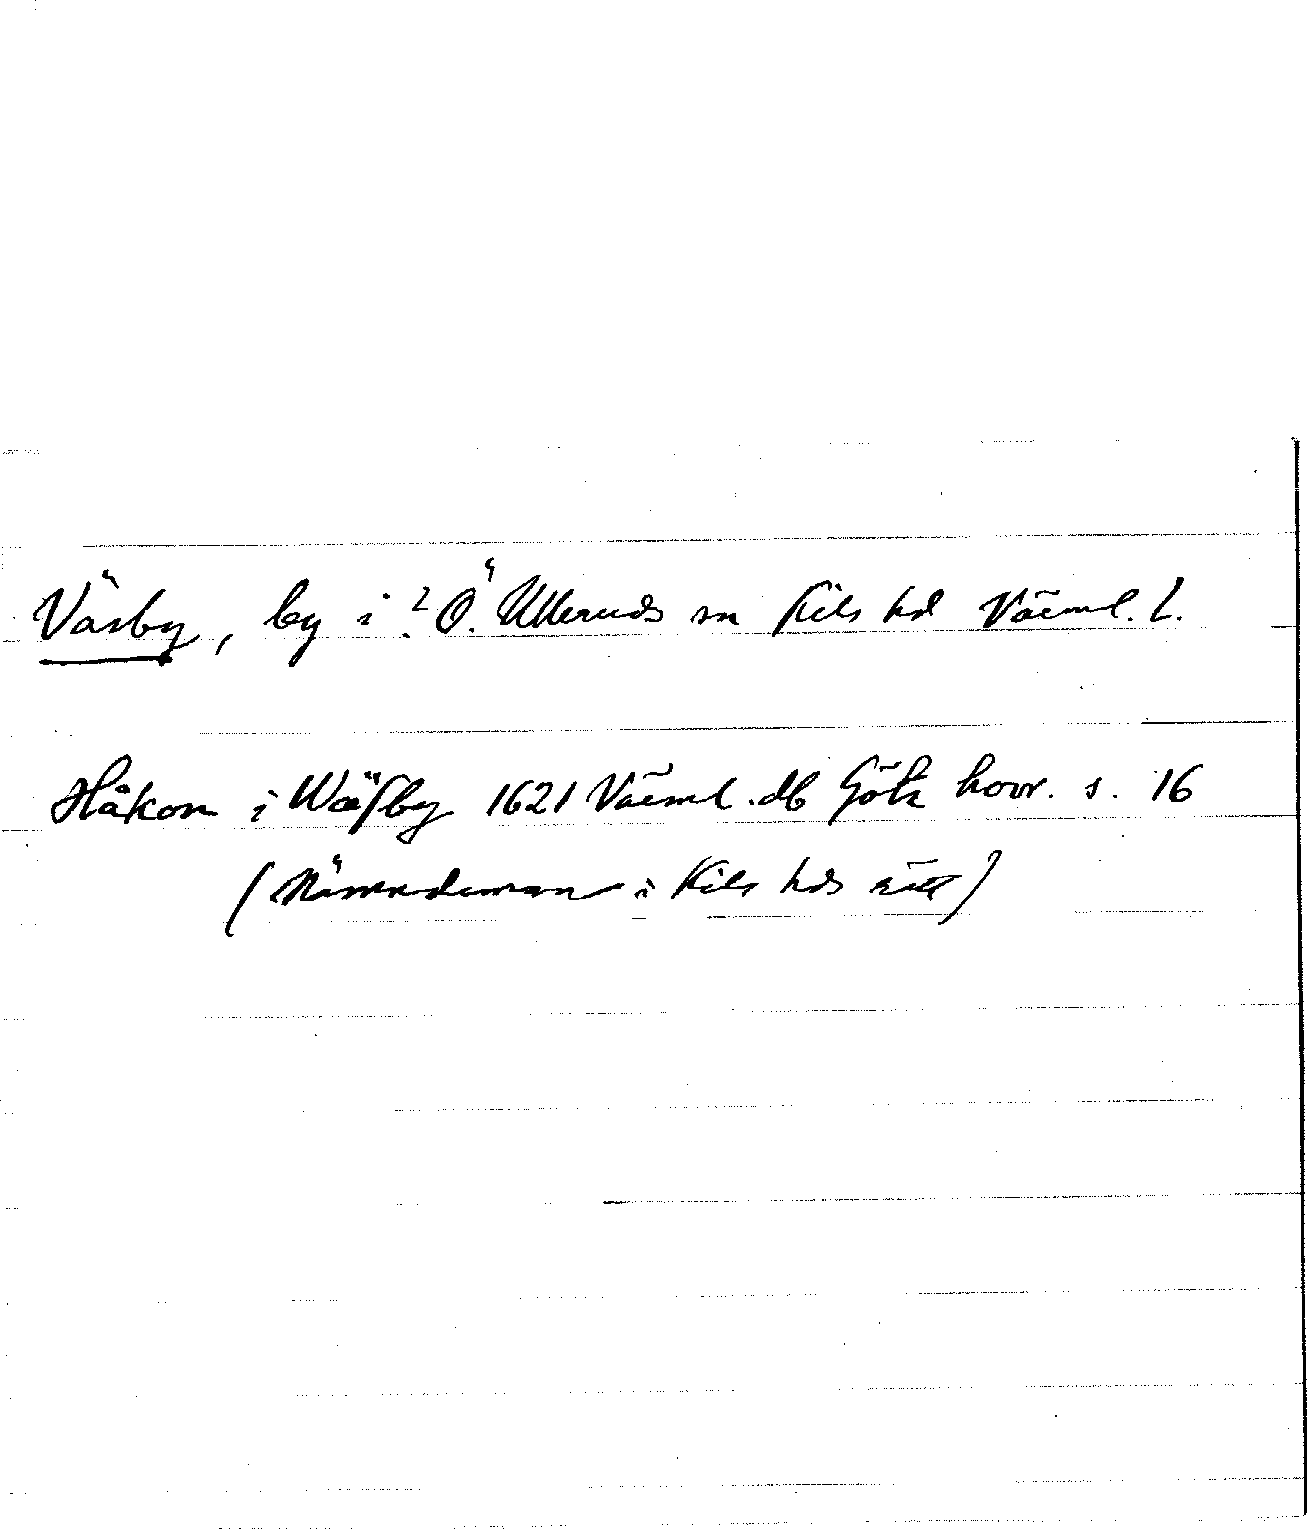 Väsby, by i ? Ö. Ulleruds sn Kils hd Värml. l.
Håkon i Wäſby 1621 Värml. db Göta hovr. s. 16
(Nämndeman i Kils hds rätt)